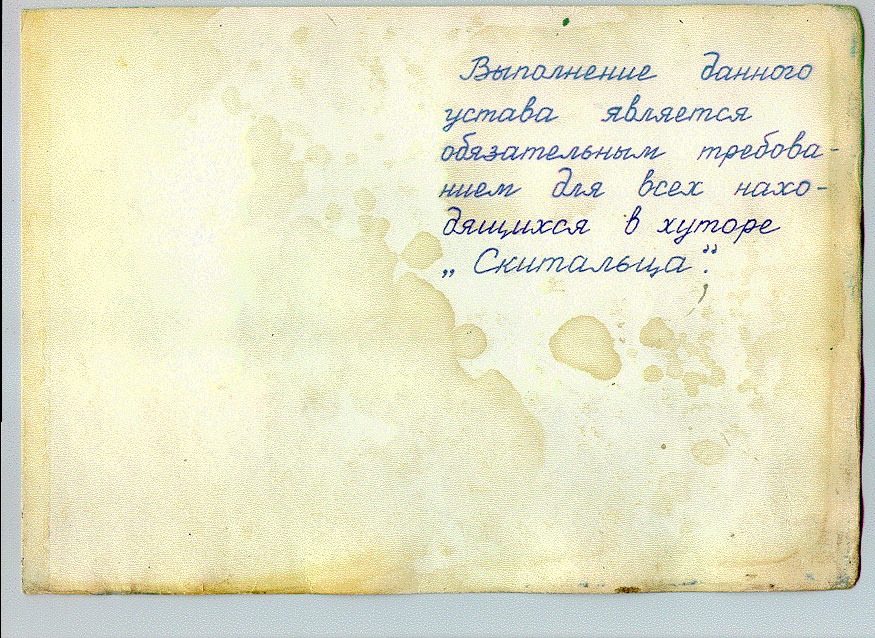 Выполнение данного
устава является
обязательным требова-
нием для всех нахо-
дящихся в хуторе
„Скитальца“.